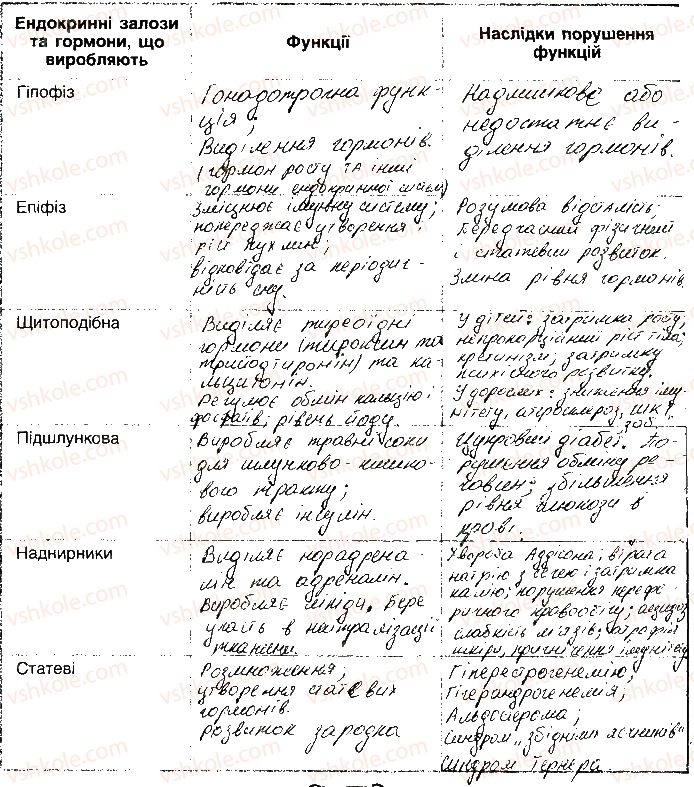 Ендокринні залози
та гормони, що
виробляють
Функції
Наслідки порушення
функцій
Гіпофіз
Гонадотропна функ-
ція;
Виділення гормонів.
(гормон росту та інші
гормони ендокринної системи)
Надлишкове або
недостатнє ви-
ділення гормонів.
Епіфіз
Зміцнює імунну систему;
попереджає утворення
рій пухлин;
відповідає за періодич-
ність сну.
Розумова відсталість;
Передчасний фізичний
і статевий розвиток.
Зміна рівня гормонів
Щитоподібна
Виділяє тиреоїдні
гормони (тироксин та
трийодтиронін) та ка-
льцитонін.
Регулює обмін кальцію і
фосфатів, рівень йоду.
У дітей: затримка росту,
непропорційний ріст тіла;
кретинізм, затримку
психічного розвитку.
У дорослих: зниження іму-
нітету, атеросклероз, ШКТ,
зоб.
Підшлункова
Виробляє травні соки
для шлунково-кишко-
вого тракту;
виробляє інсулін.
Цукровий діабет. По-
рушення обміну ре-
човин; збільшення
рівня глюкози в
крові.
Наднирники
Виділяє норадрена-
лін та адреналін.
Виробляє ліпіди. Бере
участь в нейтралізації
тканини.
Хвороба Аддісона; втрата
натрію з сечею і затримка
калію; порушення перифе-
ричного кровообігу; ацидоз,
слабкість м'язів; атрофія
шкіри, пригнічення імунітету
Статеві
Розмноження,
утворення статевих
гормонів.
Розвиток зародка
Гіперестрогенемію;
Гіперандрогенемія;
Альдостерома;
Синдром „збіднілих яєчників"
Синдром Тернера.